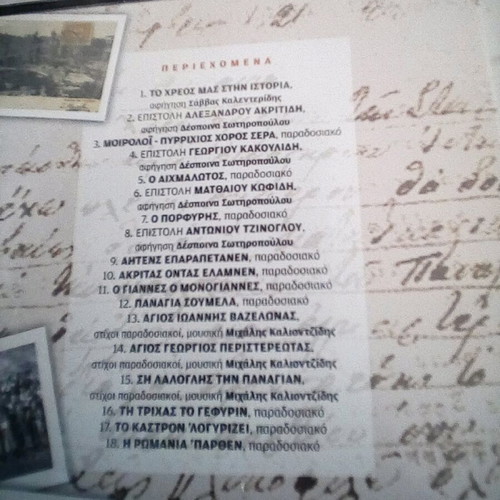 ΠΕΡΙΕΧΟΜΕΝΑ
1. ΤΟ ΧΡΕΟΣ ΜΑΣ ΣΤΗΝ ΙΣΤΟΡΙΑ,
αφήγηση Σάββας Καλεντερίδης
2. ΕΠΙΣΤΟΛΗ ΑΛΕΞΑΝΔΡΟΥ ΑΚΡΙΤΙΔΗ,
αφήγηση Δέσποινα Σωτηροπούλου
3. ΜΟΙΡΟΛΟΪ - ΠΥΡΡΙΧΙΟΣ ΧΟΡΟΣ ΣΕΡΑ, παραδοσιακό
4. ΕΠΙΣΤΟΛΗ ΓΕΩΡΓΙΟΥ ΚΑΚΟΥΛΙΔΗ,
αφήγηση Δέσποινα Σωτηροπούλου
5. Ο ΑΙΧΜΑΛΩΤΟΣ, παραδοσιακό
6. ΕΠΙΣΤΟΛΗ ΜΑΤΘΑΙΟΥ ΚΩΦΙΔΗ,
αφήγηση Δέσποινα Σωτηροπούλου
7. Ο ΠΟΡΦΥΡΗΣ, παραδοσιακό
8. ΕΠΙΣΤΟΛΗ ΑΝΤΩΝΙΟΥ ΤΖΙΝΟΓΛΟΥ,
αφήγηση Δέσποινα Σωτηροπούλου
9. ΑΗΤΕΝΣ ΕΠΑΡΑΠΕΤΑΝΕΝ, παραδοσιακό
10. ΑΚΡΙΤΑΣ ΟΝΤΑΣ ΕΛΑΜΝΕΝ, παραδοσιακό
11. Ο ΓΙΑΝΝΕΣ Ο ΜΟΝΟΓΙΑΝΝΕΣ, παραδοσιακό
12. ΠΑΝΑΓΙΑ ΣΟΥΜΕΛΑ, παραδοσιακό
13. ΑΓΙΟΣ ΙΩΑΝΝΗΣ ΒΑΖΕΛΩΝΑΣ,
στίχοι παραδοσιακοί, μουσική Μιχάλης Καλιοντζίδης
14. ΑΓΙΟΣ ΓΕΩΡΓΙΟΣ ΠΕΡΙΣΤΕΡΕΩΤΑΣ,
στίχοι παραδοσιακοί, μουσική Μιχάλης Καλιοντζίδης
15. ΣΗ ΛΑΛΟΓΛΗΣ ΤΗΝ ΠΑΝΑΓΙΑΝ,
στίχοι παραδοσιακοί, μουσική Μιχάλης Καλιοντζίδης
16. ΤΗ ΤΡΙΧΑΣ ΤΟ ΓΕΦΥΡΙΝ, παραδοσιακό
17. ΤΟ ΚΑΣΤΡΟΝ 'ΛΟΓΥΡΙΖΕΙ, παραδοσιακό
18. Η ΡΩΜΑΝΙΑ 'ΠΑΡΘΕΝ, παραδοσιακό